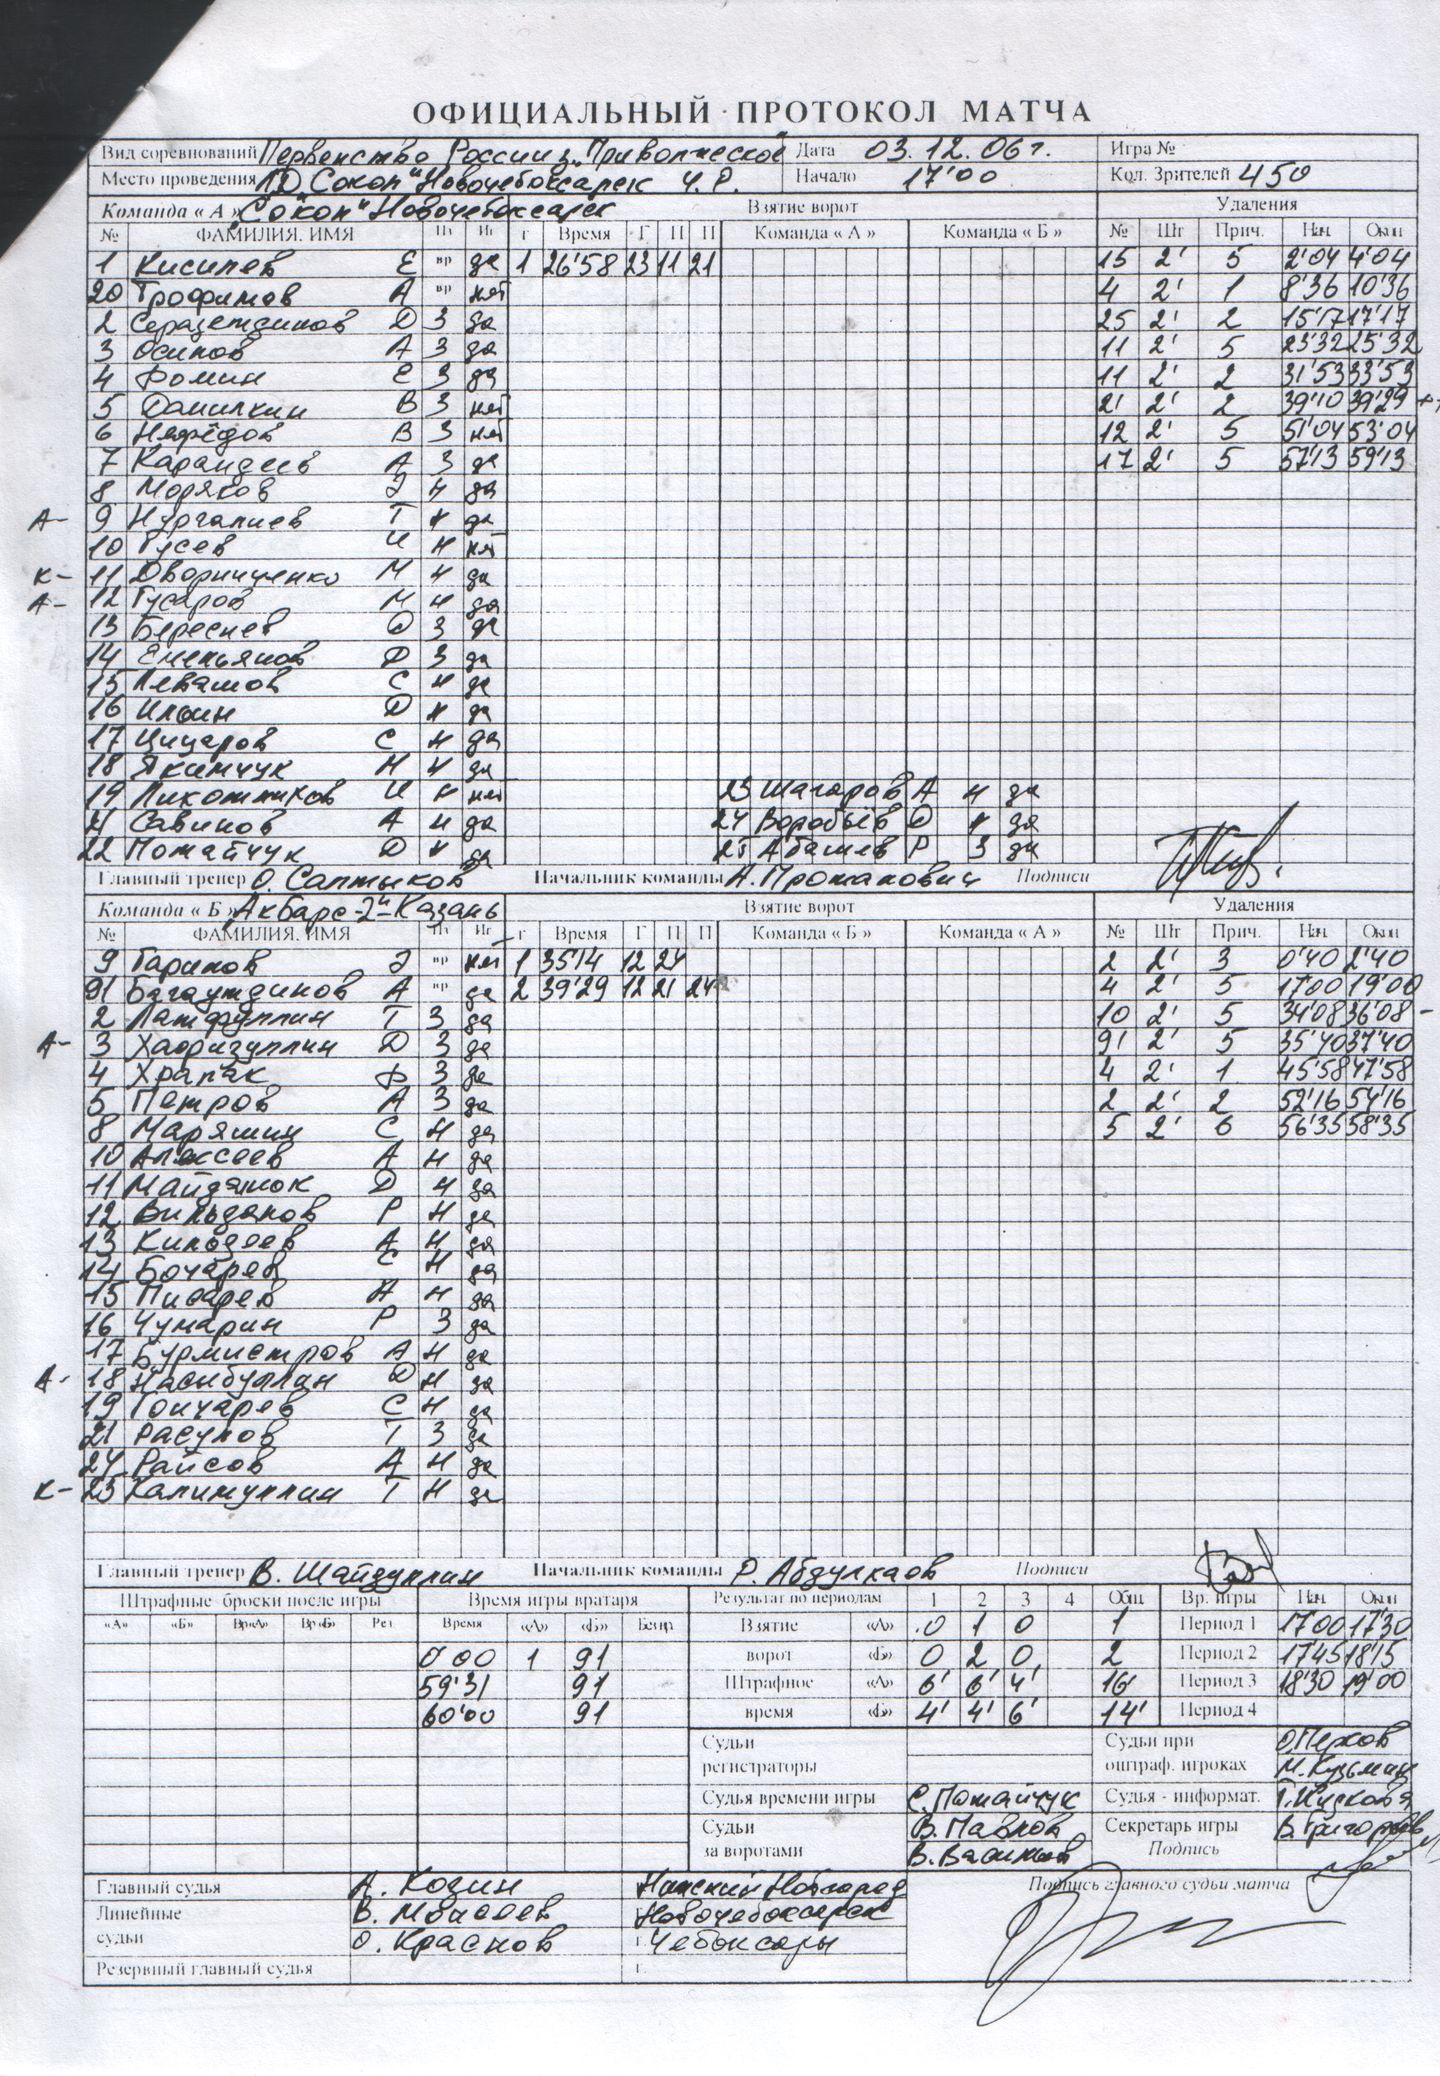 ОФИЦИАЛЬНЫЙ ПРОТОКОЛ МАТЧА
Вид соревнований Первенство России з. "Приволжское Дата 03.12.06 г. Игра №
Место проведения ЛД "Сокол" Новочебоксарск Ч.Р. Начало 17'00 Кол. Зрителей 450
Команда « А » "Сокол" Новочебоксарск Взятие ворот Удаления
№ ФАМИЛИЯ, ИМЯ Пз Иг г Время Г П П Команда « А » Команда « Б » № Шт Прич. Нач. Окон
1 Киселев Е вр да 1 26'58 23 11 21 15 2' 5 2'04 4'04
20 Трофимов А вр нет 4 2' 1 8'36 10'36
2 Серазетдинов Д З да 25 2' 2 15'17 17'17
3 Осипов А З да 11 2' 5 23'32 25'32
4 Фомин Е З да 11 2' 2 31'53 33'53
5 Данилкин В З нет 21 2' 2 39'10 39'29
6 Нефёдов В З нет 12 2' 5 51'04 53'04
7 Карандеев А З да 17 2' 5 57'13 59'13
8 Моряков Э н да
А- 9 Нургалиев Т н да
10 Гусев И н нет
К- 11 Дворниченко М н да
А- 12 Гусаров М н да
13 Береснев О З да
14 Емельянов Д З да
15 Левашов С н да
16 Ильин Д н да
17 Цицаров С н да
18 Якимчук Н н да
19 Ликотников И н нет 23 Шагаров А н да
21 Савинов А н да 24 Воробьёв О н да
22 Потайчук Д н да 25 Абашев Р З да
Главный тренер О. Салтыков Начальник команды А. Протапович Подписи
Команда « Б » "Ак Барс-2" Казань Взятие ворот Удаления
№ ФАМИЛИЯ, ИМЯ Пз Иг г Время Г П П Команда « Б » Команда « А » № Шт Прич. Нач. Окон
9 Гарипов Э вр нет 1 35'14 12 24 2 2' 3 0'40 2'40
91 Багаутдинов А вр да 2 39'29 12 21 24 4 2' 5 17'00 19'00
2 Латфуллин Т З да 10 2' 5 34'08 36'08 -
А- 3 Хафизуллин Д З да 91 2' 5 35'40 37'40
4 Храпак Ф З да 4 2' 1 45'58 47'58
5 Петров А З да 2 2' 2 52'16 54'16
8 Маряшин С н да 5 2' 6 56'35 58'35
10 Алексеев А н да
11 Майданюк Д н да
12 Вильданов Р н да
13 Кильдеев А н да
14 Бочарев С н да
15 Писарев А н да
16 Чумарин Р З да
17 Бурмистров А н да
А- 18 Насибуллин Д н да
19 Гончарев С н да
21 Расулов Т З да
24 Райсов А н да
К- 23 Калимуллин Т н да
Главный тренер В. Шайдуллин Начальник команды Р. Абдулкаов Подписи
Штрафные броски после игры Время игры вратаря Результат по периодам 1 2 3 4 Общ. Вр. игры Нач. Окон
«А» «Б» Вр«А» Вр«Б» Рез Время «А» «Б» Без вр. Взятие «А» 0 1 0 1 Период 1 17'00 17'30
0'00 1 91 ворот «Б» 0 2 0 2 Период 2 17'45 18'15
59'31 91 Штрафное «А» 6' 6' 4' 16' Период 3 18'30 19'00
60'00 91 время «Б» 4' 4' 6' 14' Период 4
Судьи регистраторы Судьи при оштраф. игроках О. Перков
М. Кузьмин
Судья времени игры С. Потайчук Судья - информат. Т.
Судьи за воротами В. Павлов Секретарь игры В. Григорьев
В. Васильев Подпись
Главный судья А. Козин Нижний Новгород Подпись главного судьи матча
Линейные В. Моисеев Новочебоксарск
судьи О. Краснов г. Чебоксары
Резервный главный судья г.